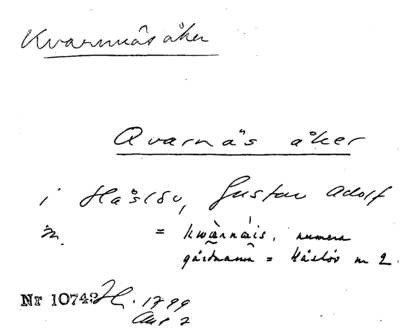 Kvarnnäsåker
Qvarnäs åker
i Håslöv, Gustav Adolf
= kwànnäis, numera
gårdnamn = Håslöv nr 2.
Nr 10743 1799